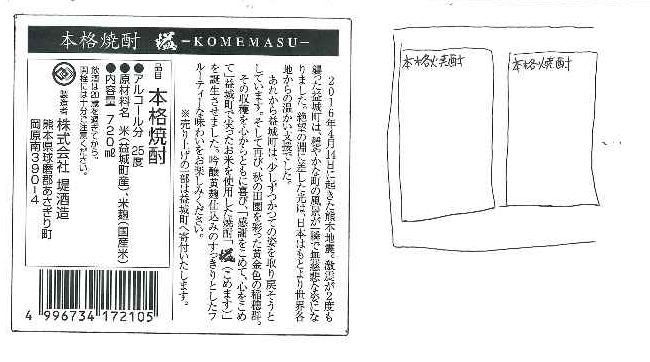 本格焼酎 -KOMEMASU-
2016年4月14日に起きた熊本地震。激震が2度も
襲った益城町は、穏やかな町の風景が一瞬で無慈悲な姿にな
りました。絶望の淵に差した光は、日本はもとより世界各
地からの温かい支援でした。
あれから益城町は、少しずつかつての姿を取り戻そうと
しています。そして再び、秋の田園を彩った黄金色の稲穂群。
その収穫を心からともに喜び、「感謝をこめて、心をこめ
て」益城町で実ったお米を使用した焼酎「(こめます)」
を誕生させました。吟醸黄麹仕込みのすっきりとしたフ
ルーティーな味わいをお楽しみください。
※売り上げの一部は益城町へ寄付いたします。
品目 本格焼酎
●アルコール分 25度
●原材料名 米(益城町産)、米麹(国産米)
●内容量 720㎖
飲酒は20歳を過ぎてから。
開栓には十分ご注意ください。
製造者 株式会社 堤酒造
熊本県球磨郡あさぎり町
岡原南390-4
4 996734 172105
本格焼酎
本格焼酎